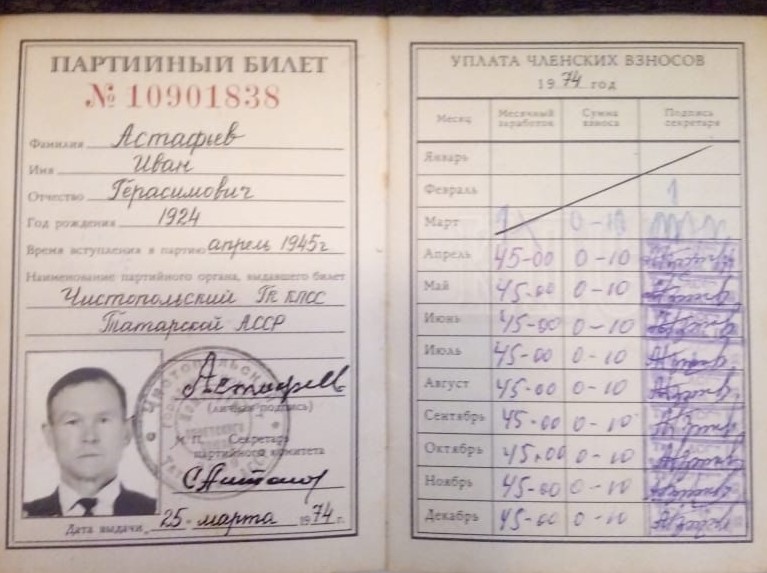 ПАРТИЙНЫЙ БИЛЕТ
№ 10901838
Фамилия Астафьев
Имя Иван
Отчество Герасимович
Год рождения 1924
Время вступления в партию апрель 1945г
Наименование партийного органа, выдавшего билет
Чистопольский ГК КПСС
Татарской АССР
Астафьев
(личная подпись)
М. П. Секретарь
партийного комитета
Дата выдачи 25 марта 1974 г.
УПЛАТА ЧЛЕНСКИХ ВЗНОСОВ
1974 год
Месяц Месячный заработок Сумма взноса Подпись секретаря
Январь
Февраль
Март 0-10
Апрель 45-00 0-10
Май 45-00 0-10
Июнь 45-00 0-10
Июль 45-00 0-10
Август 45-00 0-10
Сентябрь 45-00 0-10
Октябрь 45-00 0-10
Ноябрь 45-00 0-10
Декабрь 45-00 0-10